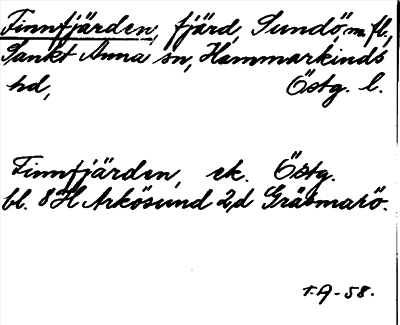 Finnfjärden, fjärd, Sundö m. fl.,
Sankt Anna sn, Hammarkinds
hd, Östg. l.
Finnfjärden, ek. Östg.
bl. 8 H Arkösund 2,d Gräsmarö.
T.A-58.